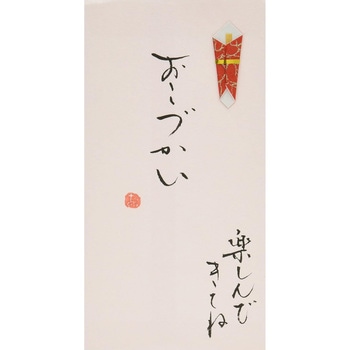 おこづかい
楽しんで
きてね